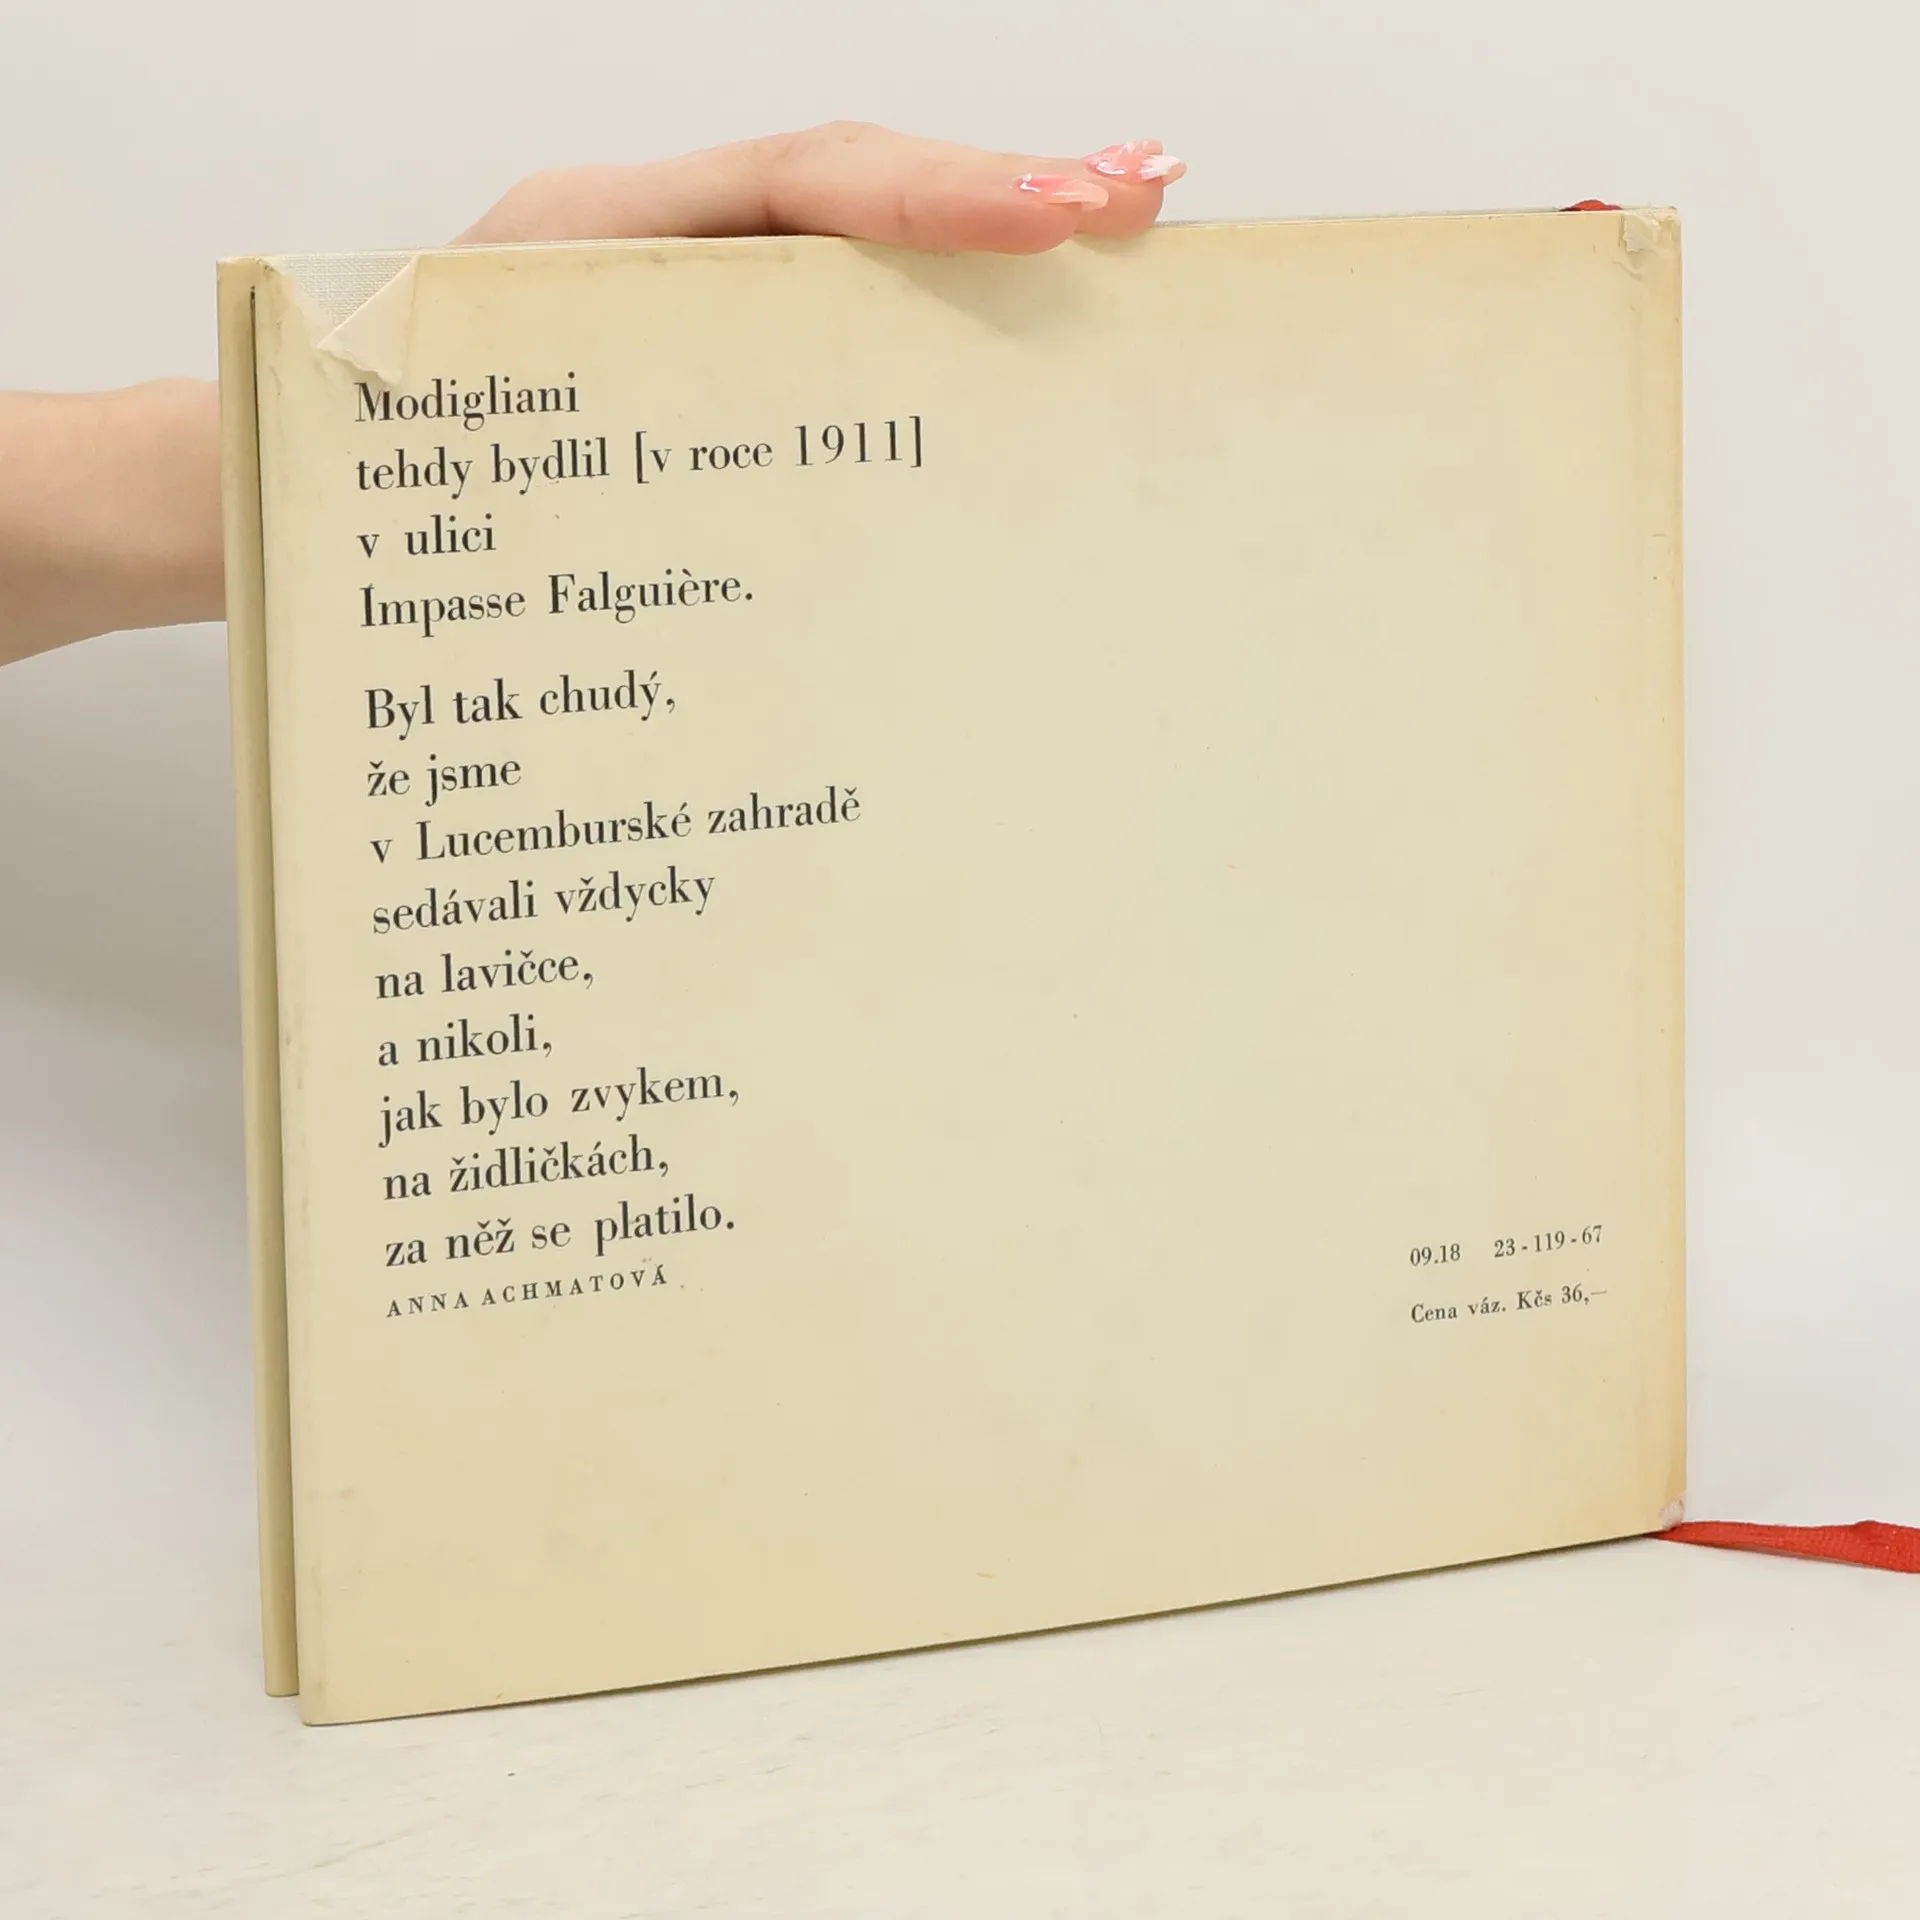 Modigliani
tehdy bydlil [v roce 1911]
v ulici
Impasse Falguière.
Byl tak chudý,
že jsme
v Lucemburské zahradě
sedávali vždycky
na lavičce,
a nikoli,
jak bylo zvykem,
na židličkách,
za něž se platilo.
ANNA ACHMATOVÁ
09.18 23-119-67
Cena váz. Kčs 36,—